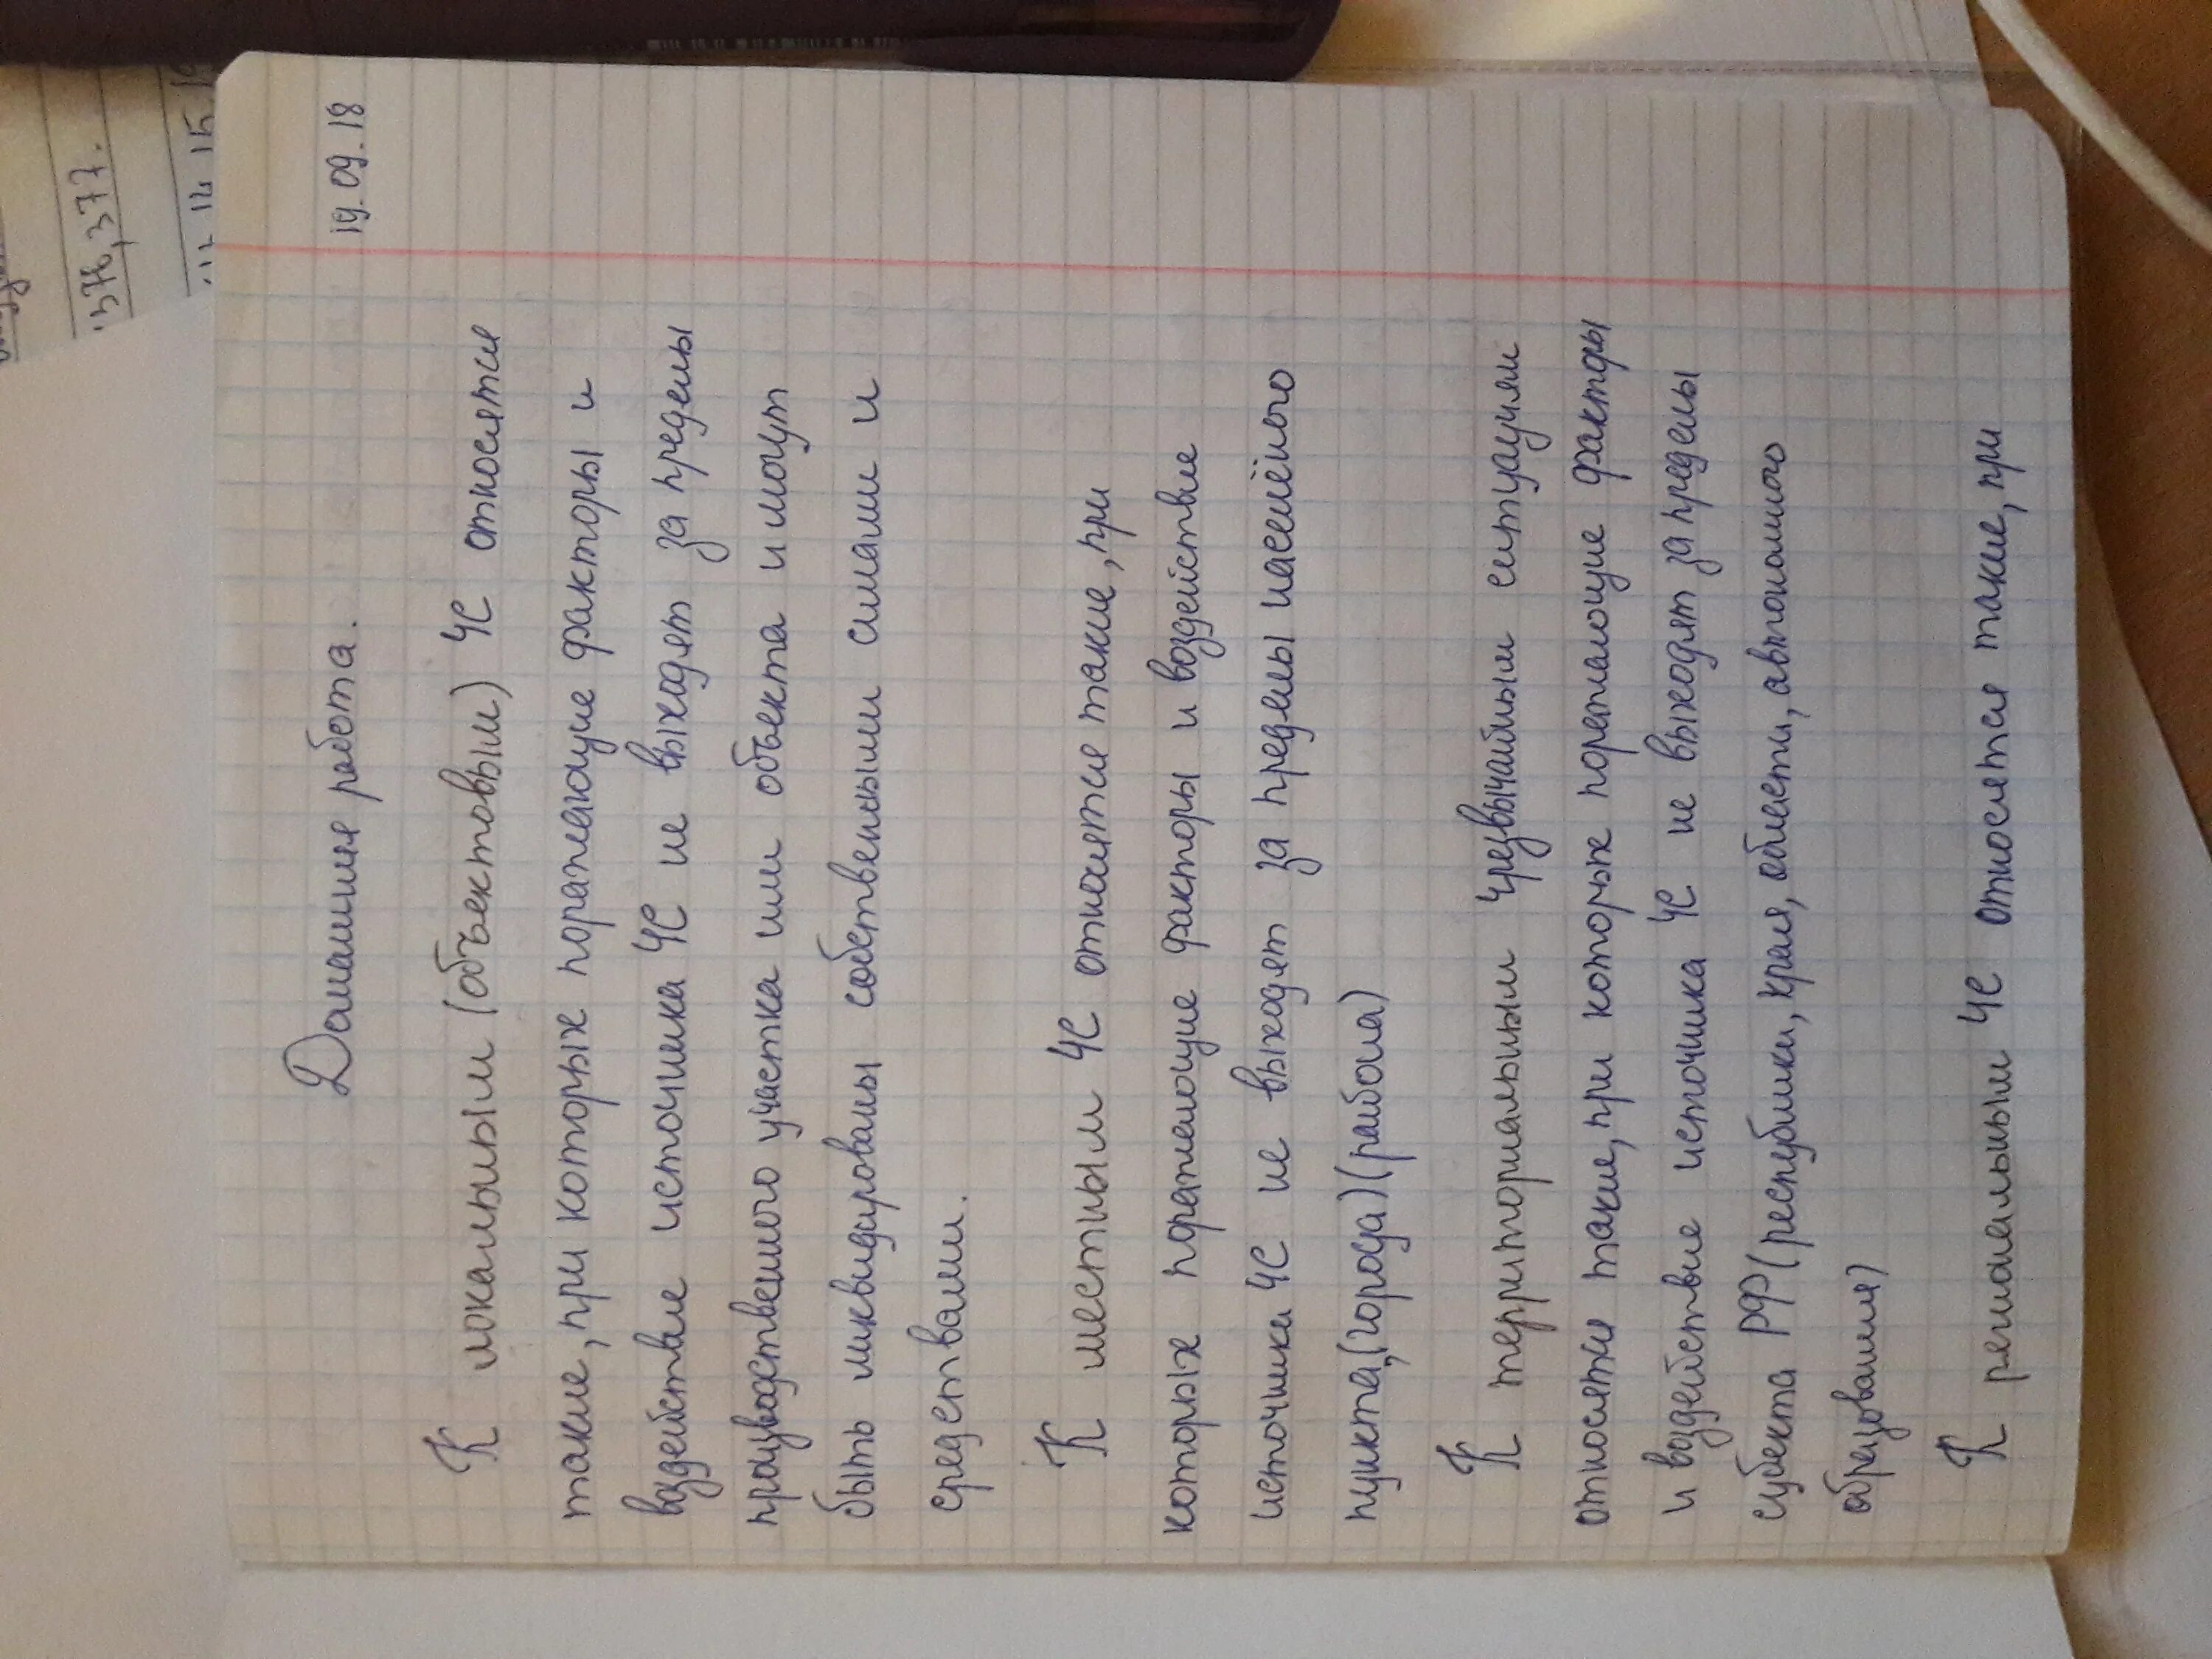 19.09.18
Домашняя работа.
К локальным (объектовым) ЧС относятся
такие, при которых поражающие факторы и
воздействие источника ЧС не выходят за пределы
производственного участка или объекта и могут
быть ликвидированы собственными силами и
средствами.
К местным ЧС относятся такие, при
которых поражающие факторы и воздействие
источника ЧС не выходят за пределы населённого
пункта,(города)(района)
К территориальным чрезвычайным ситуациям
относятся такие, при которых поражающие факторы
и воздействие источника ЧС не выходят за пределы
субекта РФ(республики, края, области, автономного
образования)
К региональным ЧС относятся такие, при
1376,377.